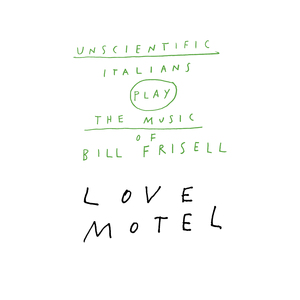 UNSCIENTIFIC
ITALIANS
PLAY
THE MUSIC
OF
BILL FRISELL
LOVE
MOTEL